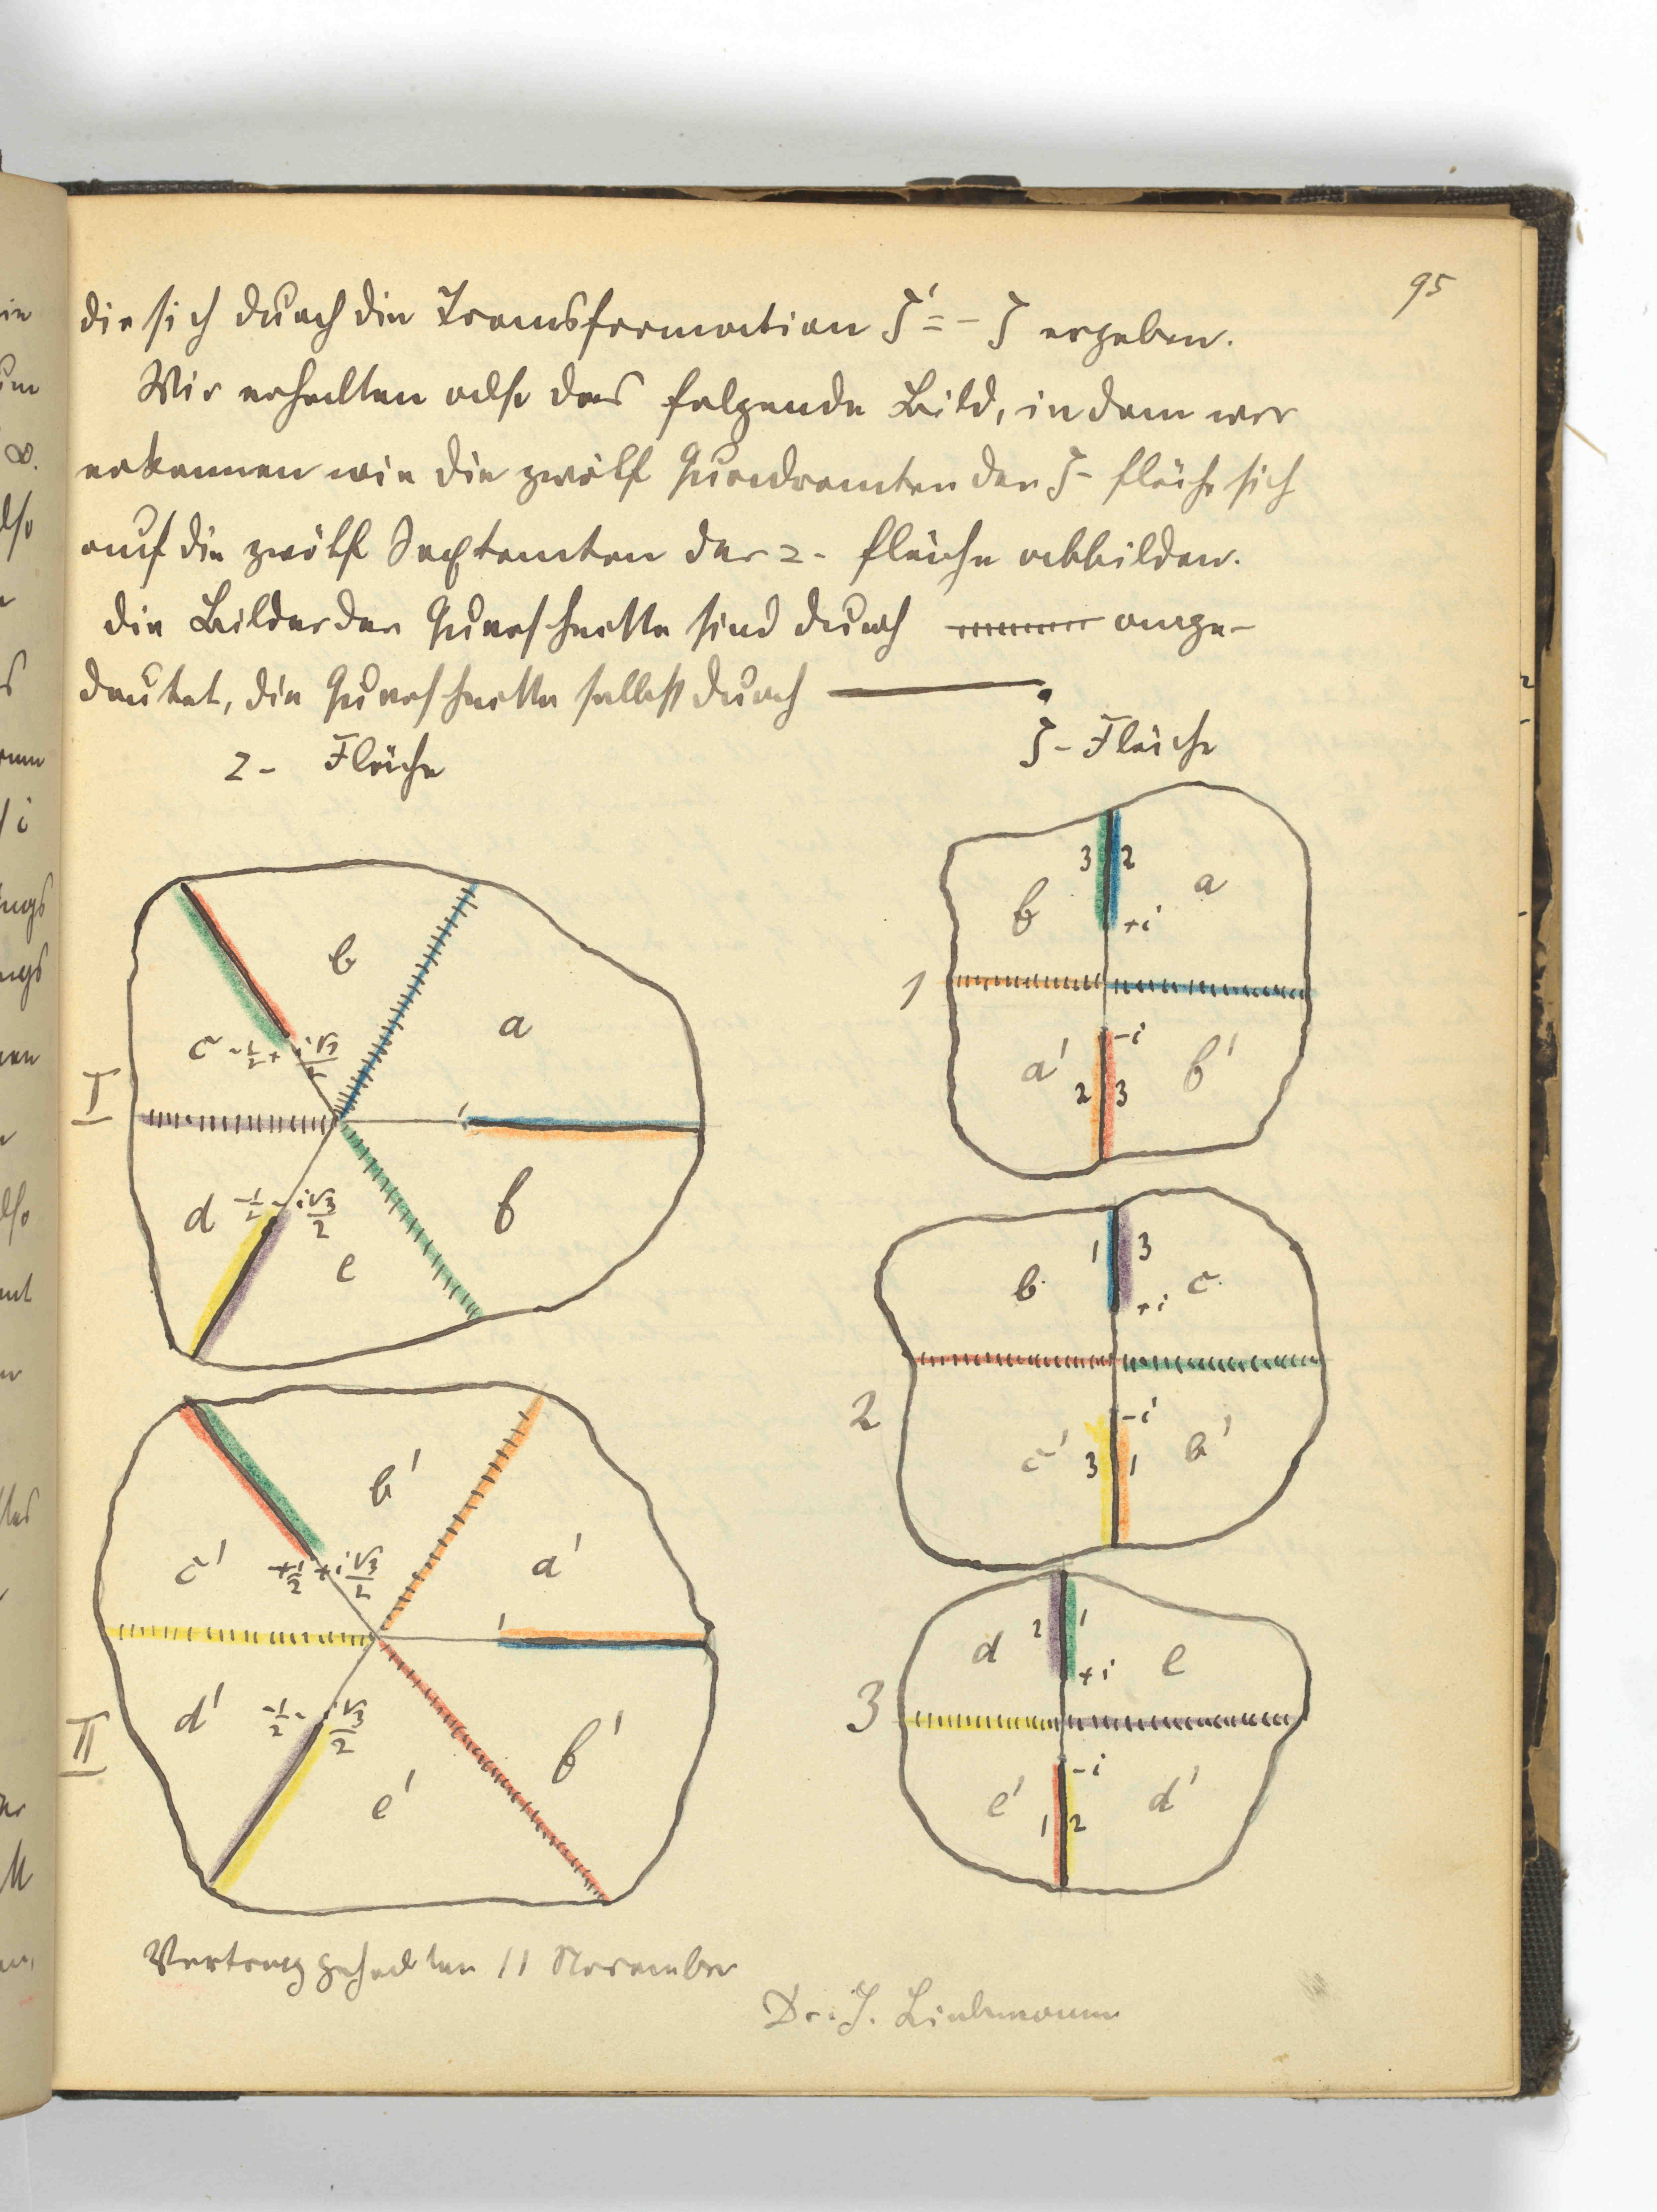 95
die sich durch die Transformation ζ' = − ζ ergeben.
Wir erhalten also das folgende Bild, in dem wir
erkennen wie die zwölf Quadranten der ζ- fläche sich
auf die zwölf Sextanten der z- fläche abbilden.
die Bilder der Querschnitte sind durch ange-
deutet, die Querschnitte selbst durch
z- Fläche
ζ- Fläche
I
b
a
c
-1/2 + i√3/2
1
d
-1/2 - i√3/2
e
f
II
b'
a'
c'
+1/2 + i√3/2
1
d'
-1/2 - i√3/2
e'
f'
1
3 2
f a
+i
-i
a' f'
2 3
2
1 3
b c
+i
-i
c' b'
3 1
3
2 1
d e
+i
-i
e' d'
1 2
Vortrag gehalten 11 November